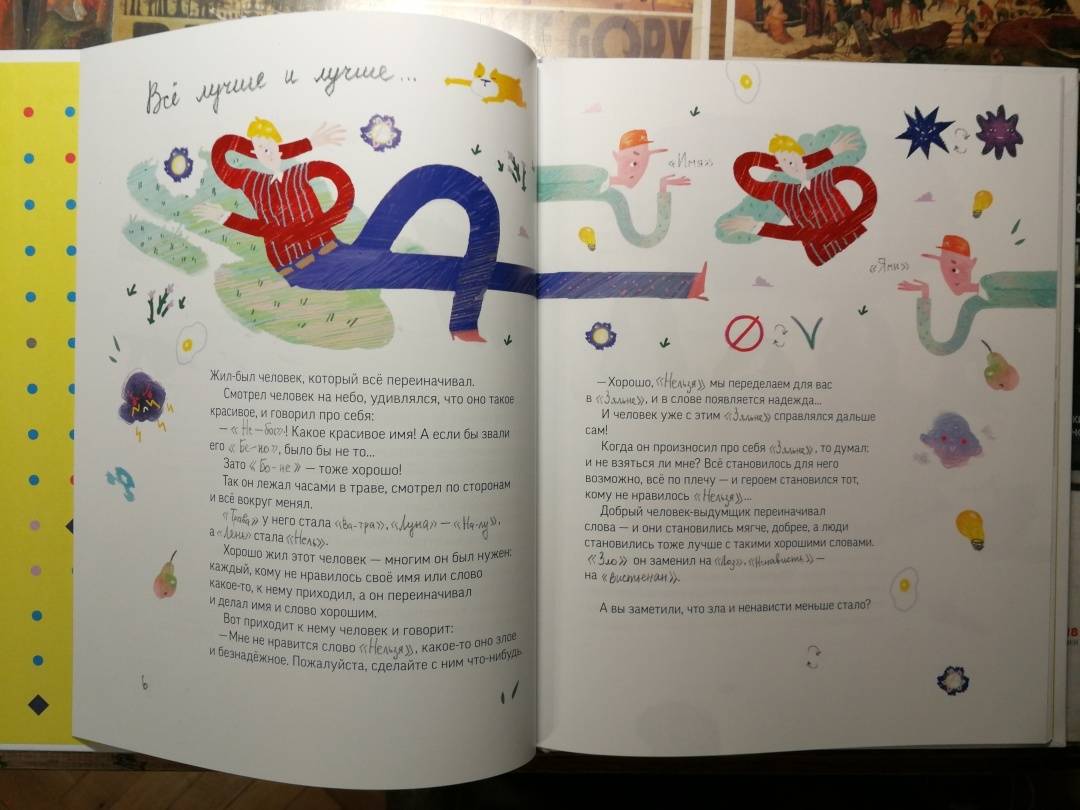 GORY
Всё лучше и лучше...
Жил-был человек, который всё переиначивал.
Смотрел человек на небо, удивлялся, что оно такое
красивое, и говорил про себя:
— «Не-бо»! Какое красивое имя! А если бы звали
его «Бе-но», было бы не то...
Зато «Бо-не» — тоже хорошо!
Так он лежал часами в траве, смотрел по сторонам
и всё вокруг менял.
«Трава» у него стала «Ва-тра», «Луна» — «На-лу»,
а «Лень» стала «Нель».
Хорошо жил этот человек — многим он был нужен:
каждый, кому не нравилось своё имя или слово
какое-то, к нему приходил, а он переиначивал
и делал имя и слово хорошим.
Вот приходит к нему человек и говорит:
— Мне не нравится слово «Нельзя», какое-то оно злое
и безнадёжное. Пожалуйста, сделайте с ним что-нибудь.
6
«Имя»
«Ями»
— Хорошо, «Нельзя» мы переделаем для вас
в «Зяльне», и в слове появляется надежда...
И человек уже с этим «Зяльне» справлялся дальше
сам!
Когда он произносил про себя «Зяльне», то думал:
и не взяться ли мне? Всё становилось для него
возможно, всё по плечу — и героем становился тот,
кому не нравилось «Нельзя»...
Добрый человек-выдумщик переиначивал
слова — и они становились мягче, добрее, а люди
становились тоже лучше с такими хорошими словами.
«Зло» он заменил на «Лоз», «Ненависть» —
на «Вистненан».
А вы заметили, что зла и ненависти меньше стало?